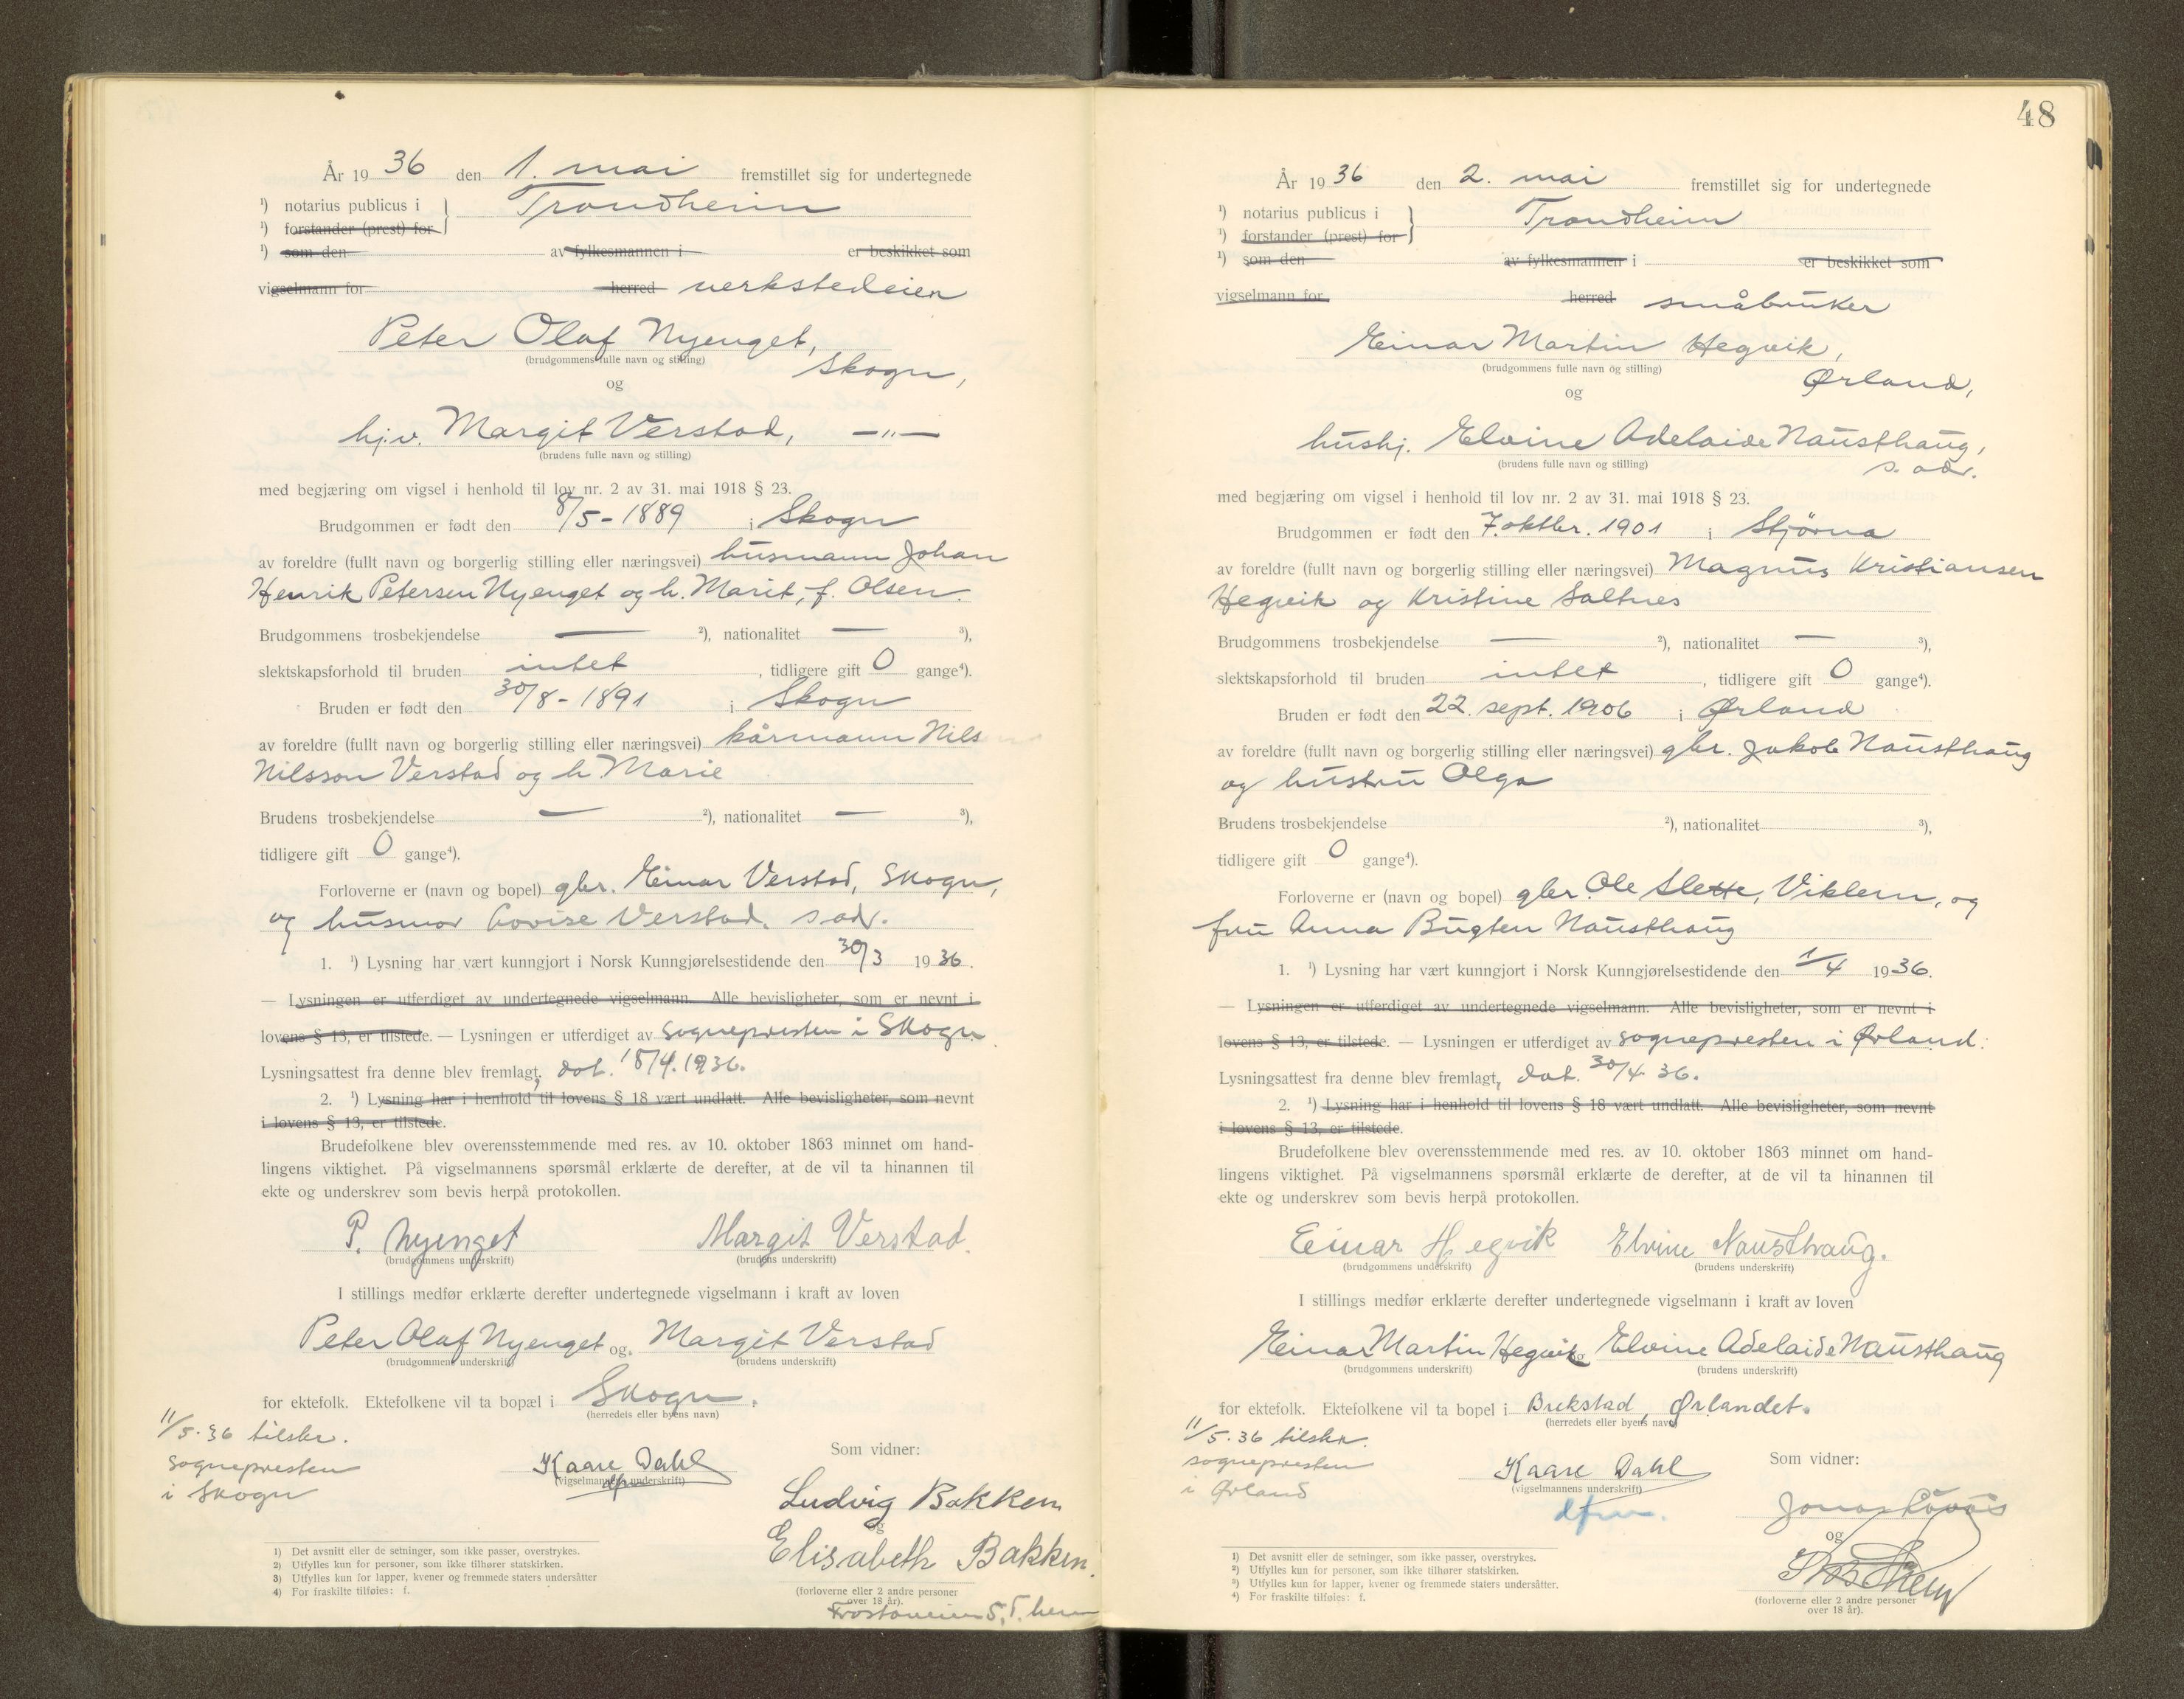 År 1936 den 1. mai fremstillet sig for undertegnede
¹) notarius publicus i } Trondheim
¹) forstander (prest) for
¹) som den av fylkesmannen i er beskikket som
vigselmann for herred verkstedeier
Peter Olaf Nyenget,
(brudgommens fulle navn og stilling)
Skogn,
og
hj.v. Margit Verstad, —"—
(brudens fulle navn og stilling)
med begjæring om vigsel i henhold til lov nr. 2 av 31. mai 1918 § 23.
Brudgommen er født den 8/5-1889 i Skogn
av foreldre (fullt navn og borgerlig stilling eller næringsvei) husmann Johan
Henrik Petersen Nyenget og h. Marit, f. Olsen.
Brudgommens trosbekjendelse — ²), nationalitet — ³),
slektskapsforhold til bruden intet, tidligere gift 0 gange⁴).
Bruden er født den 30/8-1891 i Skogn
av foreldre (fullt navn og borgerlig stilling eller næringsvei) kårmann Nils
Nilsson Verstad og h Marie
Brudens trosbekjendelse — ²), nationalitet — ³),
tidligere gift 0 gange⁴).
Forloverne er (navn og bopel) gbr. Einar Verstad, Skogn,
og husmor Lovise Verstad. s adr.
1. ¹) Lysning har vært kunngjort i Norsk Kunngjørelsestidende den 30/3 1936.
— Lysningen er utferdiget av undertegnede vigselmann. Alle bevisligheter, som er nevnt i
lovens § 13, er tilstede. — Lysningen er utferdiget av sognepresten i Skogn.
Lysningsattest fra denne blev fremlagt, dat. 18/4. 1936.
2. ¹) Lysning har i henhold til lovens § 18 vært undlatt. Alle bevisligheter, som nevnt
i lovens § 13, er tilstede.
Brudefolkene blev overensstemmende med res. av 10. oktober 1863 minnet om hand-
lingens viktighet. På vigselmannens spørsmål erklærte de derefter, at de vil ta hinannen til
ekte og underskrev som bevis herpå protokollen.
P. Nyenget Margit Verstad.
(brudgommens underskrift) (brudens underskrift)
I stillings medfør erklærte derefter undertegnede vigselmann i kraft av loven
Peter Olaf Nyenget og Margit Verstad
(brudgommens underskrift) (brudens underskrift)
for ektefolk. Ektefolkene vil ta bopæl i Skogn.
(herredets eller byens navn)
11/5.36 tilskr.
sognepresten
i Skogn
Kaare Dahl
(vigselmannens underskrift)
dfm
Som vidner:
Ludvig Bakken
og
Elisabeth Bakken.
(forloverne eller 2 andre personer
over 18 år).
Frostaveien 5, T.heim
1) Det avsnitt eller de setninger, som ikke passer, overstrykes.
2) Utfylles kun for personer, som ikke tilhører statskirken.
3) Utfylles kun for lapper, kvener og fremmede staters undersåtter
4) For fraskilte tilføies: f.
48
År 1936 den 2. mai fremstillet sig for undertegnede
¹) notarius publicus i } Trondheim
¹) forstander (prest) for
¹) som den av fylkesmannen i er beskikket som
vigselmann for herred småbruker
Einar Martin Hegvik,
(brudgommens fulle navn og stilling)
Ørland,
og
hushj. Elvine Adelaide Nausthaug,
(brudens fulle navn og stilling)
s. adr.
med begjæring om vigsel i henhold til lov nr. 2 av 31. mai 1918 § 23.
Brudgommen er født den 7. oktbr. 1901 i Stjørna
av foreldre (fullt navn og borgerlig stilling eller næringsvei) Magnus Kristiansen
Hegvik og Kristine Saltnes
Brudgommens trosbekjendelse — ²), nationalitet — ³),
slektskapsforhold til bruden intet, tidligere gift 0 gange⁴).
Bruden er født den 22. sept. 1906 i Ørland
av foreldre (fullt navn og borgerlig stilling eller næringsvei) gbr. Jakob Nausthaug
og hustru Olga
Brudens trosbekjendelse ²), nationalitet ³),
tidligere gift 0 gange⁴).
Forloverne er (navn og bopel) gbr. Ole Slette, Viklem, og
fru Anna Bugten Nausthaug
1. ¹) Lysning har vært kunngjort i Norsk Kunngjørelsestidende den 1/4 1936.
— Lysningen er utferdiget av undertegnede vigselmann. Alle bevisligheter, som er nevnt i
lovens § 13, er tilstede. — Lysningen er utferdiget av sognepresten i Ørland.
Lysningsattest fra denne blev fremlagt, dat. 30/4 36.
2. ¹) Lysning har i henhold til lovens § 18 vært undlatt. Alle bevisligheter, som nevnt
i lovens § 13, er tilstede.
Brudefolkene blev overensstemmende med res. av 10. oktober 1863 minnet om hand-
lingens viktighet. På vigselmannens spørsmål erklærte de derefter, at de vil ta hinannen til
ekte og underskrev som bevis herpå protokollen.
Einar Hegvik Elvine Nausthaug.
(brudgommens underskrift) (brudens underskrift)
I stillings medfør erklærte derefter undertegnede vigselmann i kraft av loven
Einar Martin Hegvik og Elvine Adelaide Nausthaug
(brudgommens underskrift) (brudens underskrift)
for ektefolk. Ektefolkene vil ta bopel i Brekstad, Ørlandet.
(herredets eller byens navn)
11/5.36 tilskr.
sognepresten
i Ørland
Kaare Dahl
(vigselmannens underskrift)
dfm.
Som vidner:
Jonas
og
(forloverne eller 2 andre personer
over 18 år).
1) Det avsnitt eller de setninger, som ikke passer, overstrykes.
2) Utfylles kun for personer, som ikke tilhører statskirken.
3) Utfylles kun for lapper, kvener og fremmede staters undersåtter.
4) For fraskilte tilføies: f.